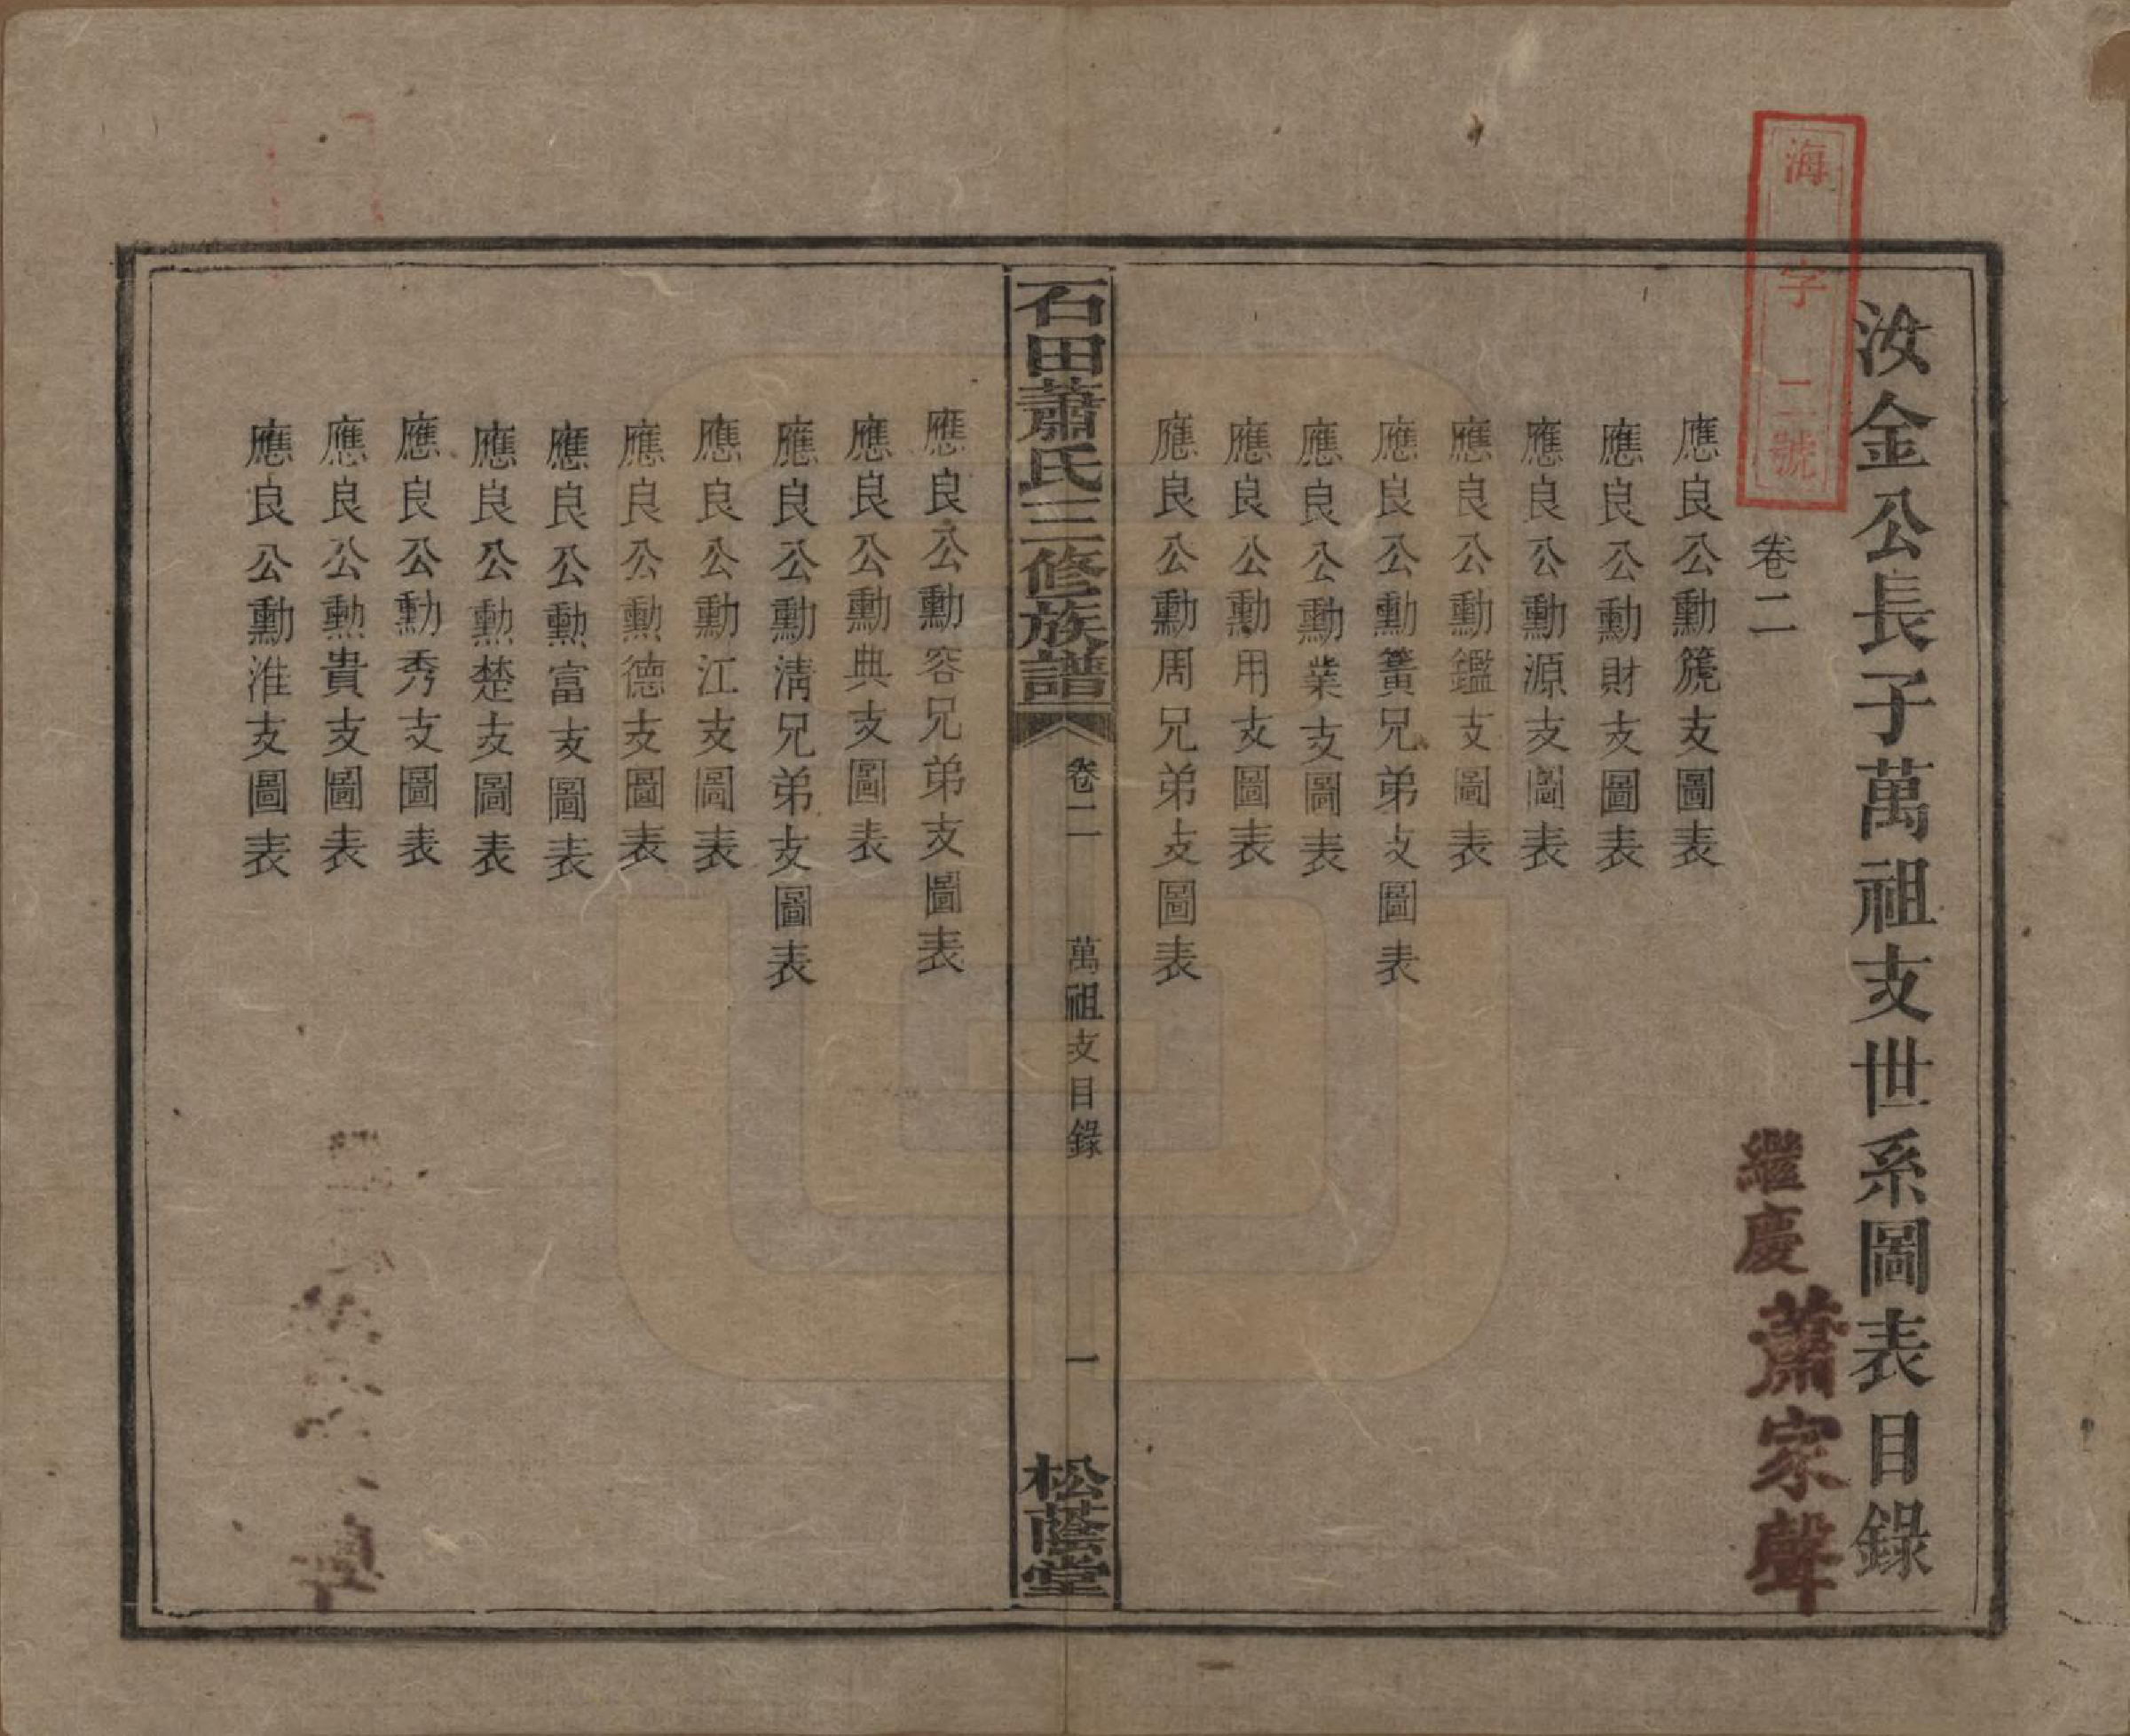 汝金公長子萬祖支世系圖表目錄
海字二號
卷二
繼慶蕭家聲
應良公勳篪支圖表
應良公勳財支圖表
應良公勳源支圖表
應良公勳鑑支圖表
應良公勳簧兄弟支圖表
應良公勳業支圖表
應良公勳用支圖表
應良公勳周兄弟支圖表
石田蕭氏三修族譜
卷二
萬祖支目錄
一
松蔭堂
應良公勳容兄弟支圖表
應良公勳典支圖表
應良公勳淸兄弟支圖表
應良公勳江支圖表
應良公勳德支圖表
應良公勳富支圖表
應良公勳楚支圖表
應良公勳秀支圖表
應良公勳貴支圖表
應良公勳淮支圖表